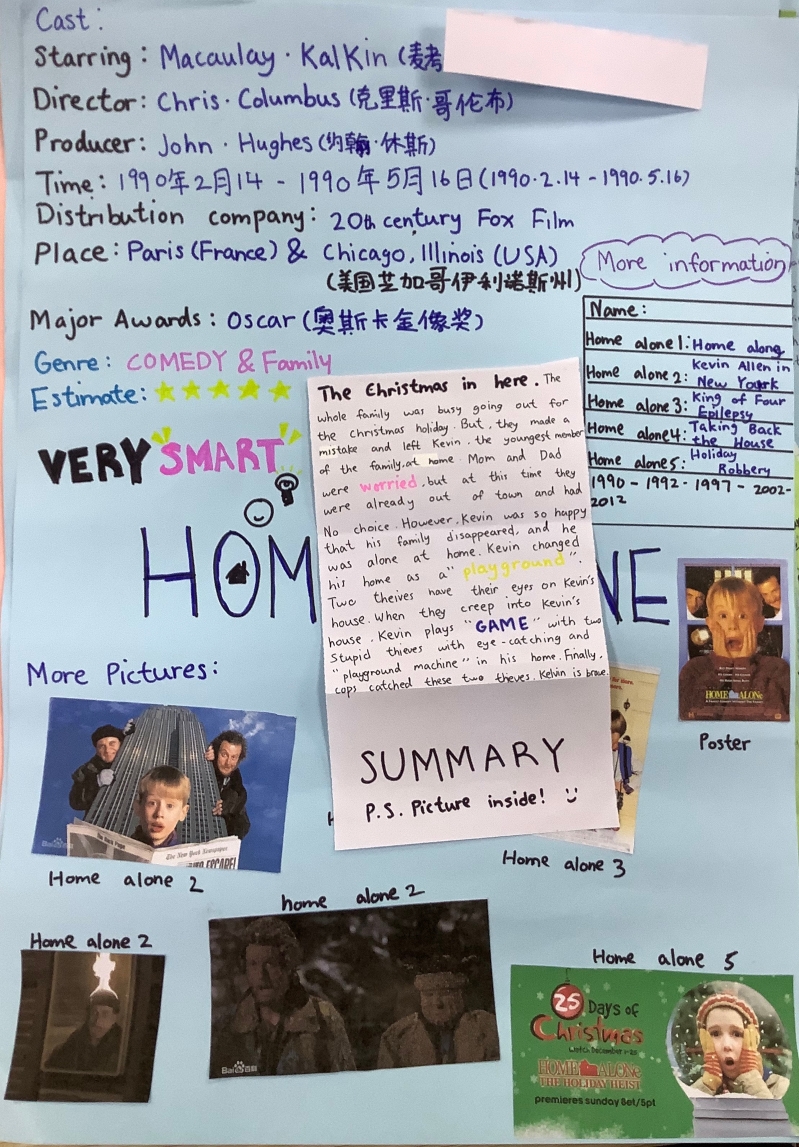 Cast:
Starring: Macaulay · Kalkin (麦考
Director: Chris · Columbus (克里斯·哥伦布)
Producer: John · Hughes (约翰·休斯)
Time: 1990年2月14 - 1990年5月16日(1990·2.14 - 1990.5.16)
Distribution company: 20th century Fox Film
Place: Paris (France) & Chicago, Illinois (USA)
(美国芝加哥伊利诺斯州)
Major Awards: Oscar (奥斯卡金像奖)
Genre: COMEDY & Family
Estimate:
VERY SMART
More information
Name:
Home alone 1: Home along
Home alone 2: Kevin Allen in
New Yourk
Home alone 3: King of Four
Epilepsy
Home alone 4: Taking Back
the House
Home alone 5: Holiday
Robbery
1990 - 1992 - 1997 - 2002-
2012
HOM
NE
The Christmas in here. The
whole family was busy going out for
the christmas holiday. But, they made a
mistake and left Kevin, the youngest member
of the family, at home. Mom and Dad
were worried, but at this time they
were already out of town and had
No choice. However, Kevin was so happy
that his family disappeared, and he
was alone at home. Kevin changed
his home as a "playground".
Two theives have their eyes on Kevin's
house. When they creep into Kevin's
house, Kevin plays "GAME" with two
Stupid thieves with eye-catching and
"playground machine" in his home. Finally,
cops catched these two thieves. Kelvin is brave.
SUMMARY
P.S. Picture inside!
More Pictures:
HOME ALONe
Poster
The New York Newspaper
ESCAPE!
Home alone 2
Home alone 3
home alone 2
Home alone 2
Bai百科
Home alone 5
25 Days of
Christmas
Watch December 1-25
HOME ALONe
THE HOLIDAY HEIST
premieres sunday 8et/5pt